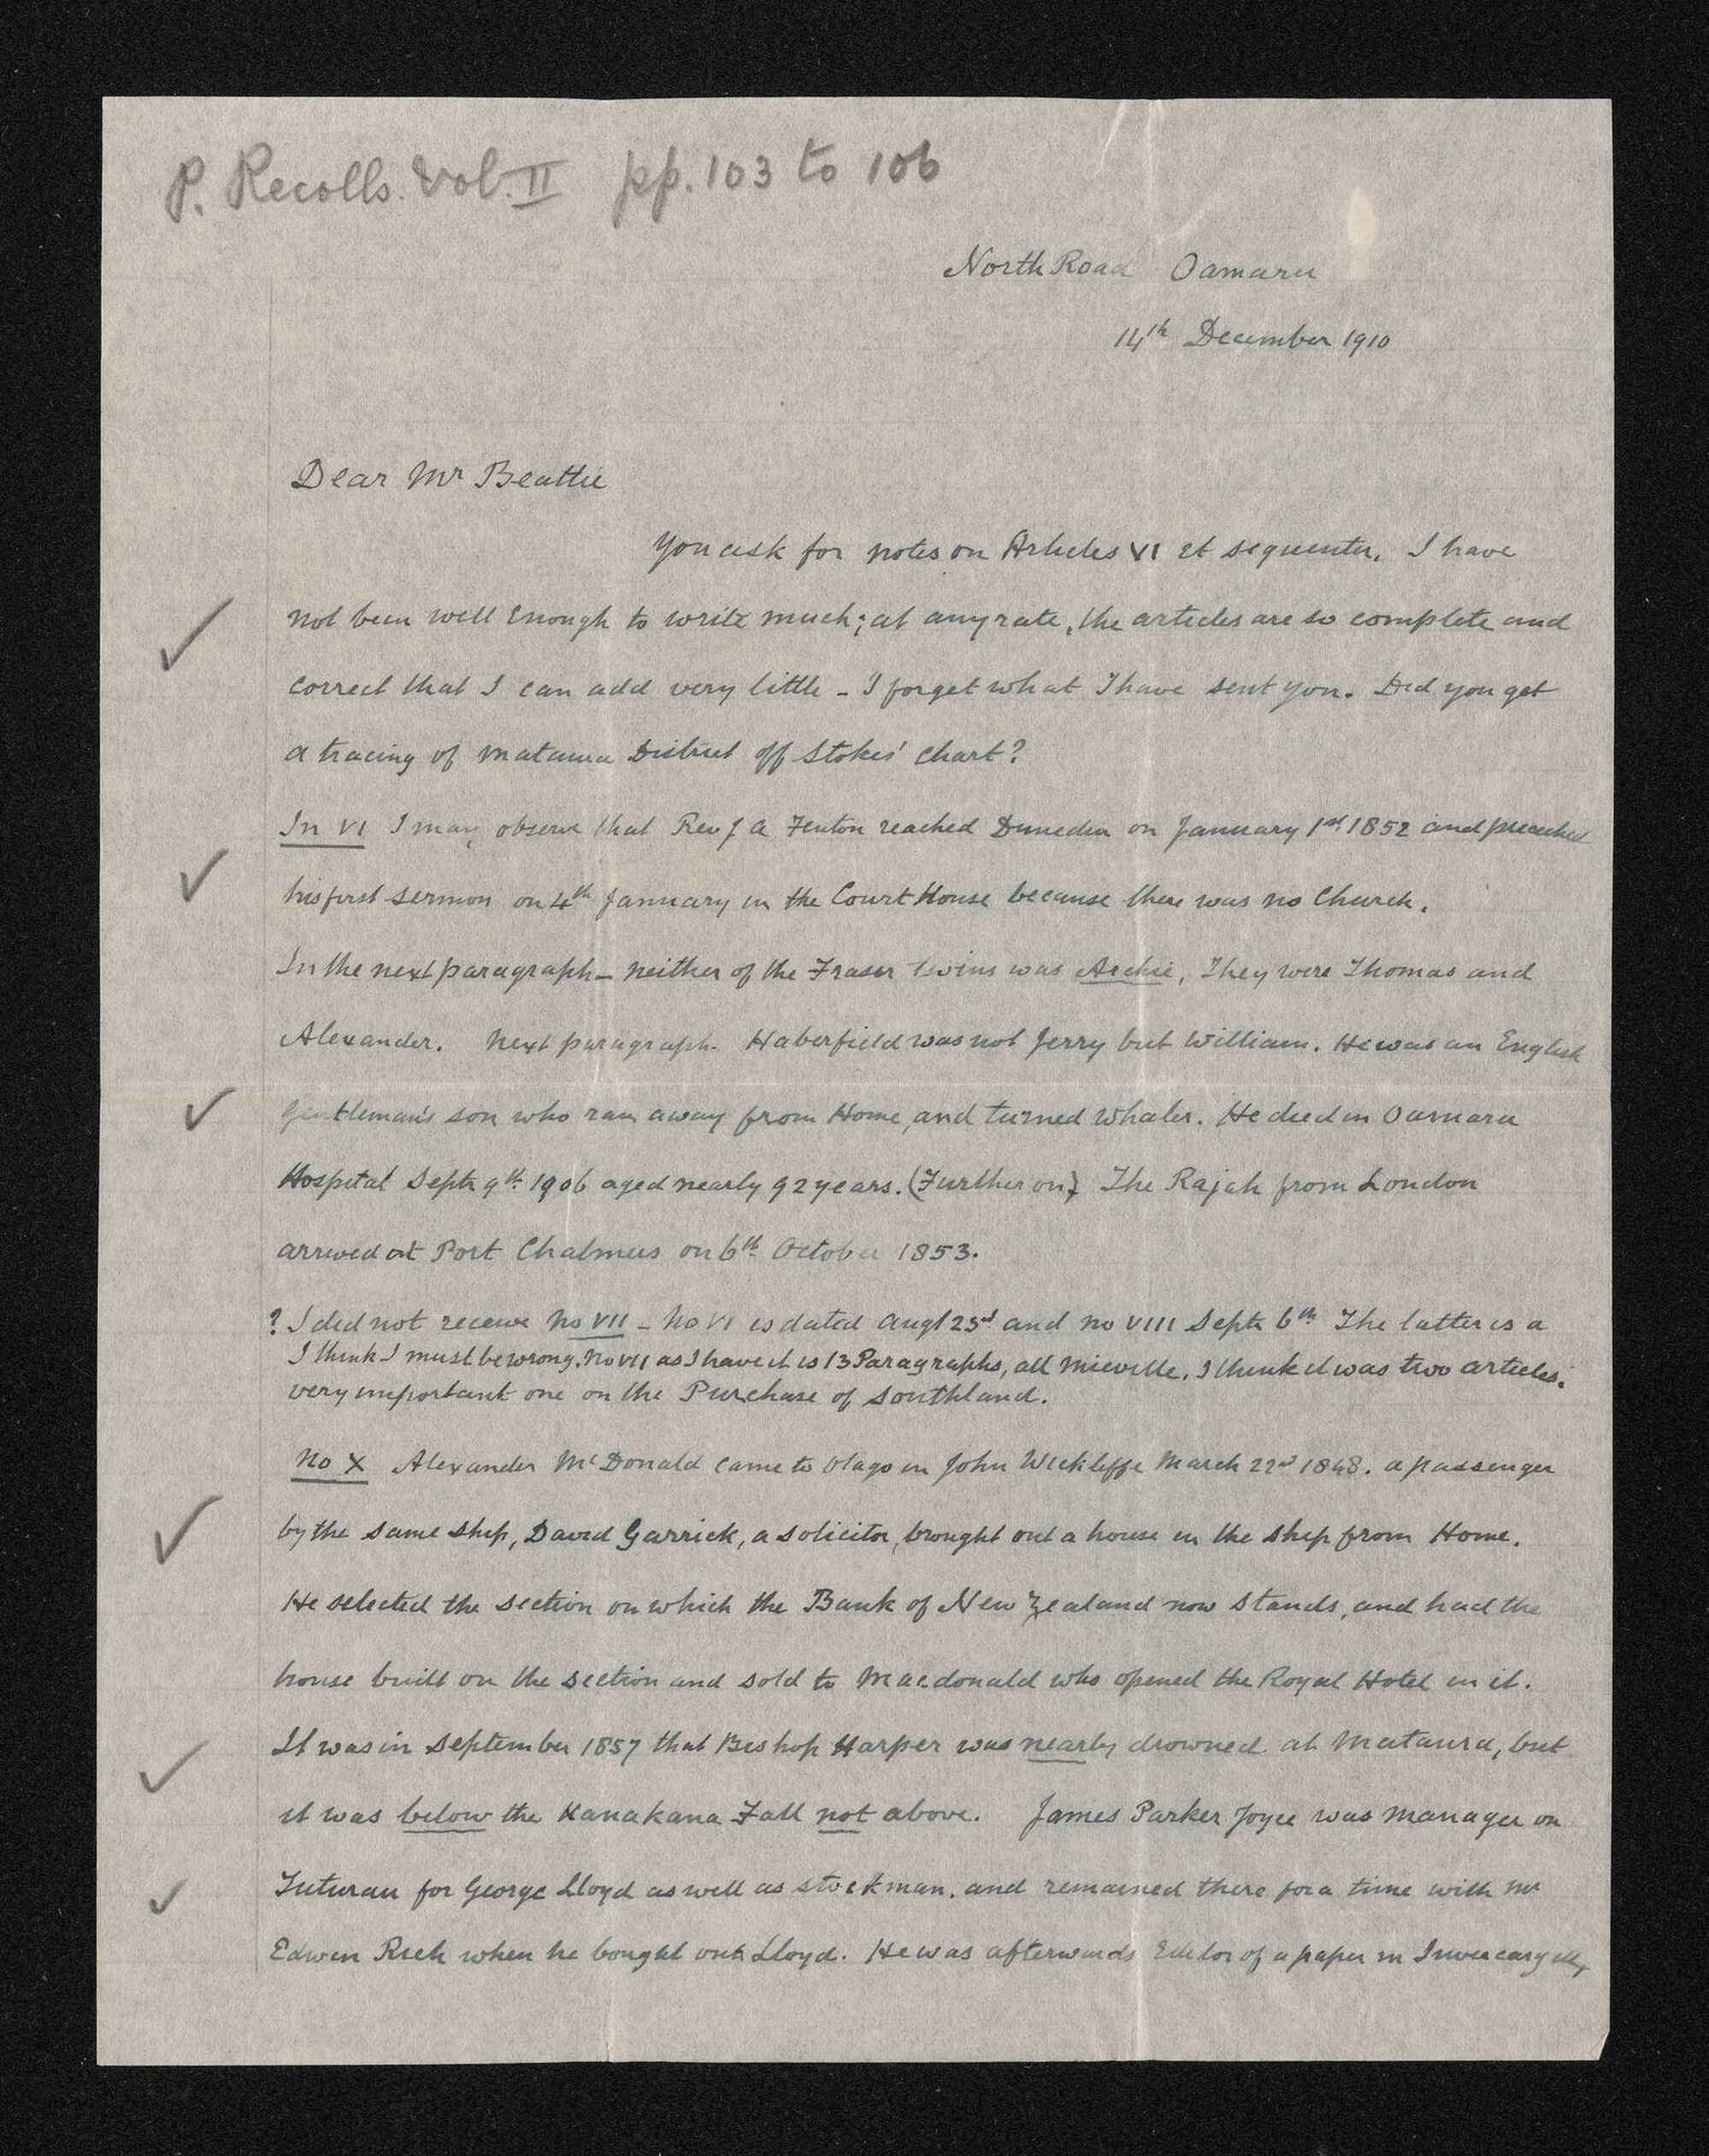 P. Recolls. Vol. II pp. 103 to 106
North Road Oamaru
14th December 1910
Dear Mr Beattie
You ask for notes on Articles VI et sequenter. I have
not been well enough to write much; at anyrate, the articles are so complete and
correct that I can add very little - I forget what I have sent you. Did you get
a tracing of Mataura District off Stokes' Chart?
In VI I may observe that Rev J A Fenton reached Dunedin on January 1st 1852 and preached
his first sermon on 4th January in the Court House because there was no Church.
In the next paragraph - neither of the Fraser twins was Archie, They were Thomas and
Alexander. Next paragraph. Haberfield was not Jerry but William. He was an English
gentleman's son who ran away from Home, and turned whaler. He died in Oamaru
Hospital Septr 9th 1906 aged nearly 92 years. (Further on) The Rajah from London
arrived at Port Chalmers on 6th October 1853.
? I did not receive No VII - No VI is dated Augt 23rd and no VIII Septr 6th The latter is a
I think I must be wrong. No VII as I have it is 13 Paragraphs, all Mieville. I think it was two articles.
very important one on the Purchase of Southland.
No X Alexander McDonald came to Otago in John Wickliffe March 22nd 1848. a passenger
by the same ship, David Garrick, a solicitor, brought out a house in the ship from Home.
He selected the section on which the Bank of New Zealand now stands, and had the
house built on the section and sold to Macdonald who opened the Royal Hotel in it.
It was in September 1857 that Bishop Harper was nearly drowned at Mataura, but
it was below the Kanakana Fall not above. James Parker Joyce was manager on
Tuturau for George Lloyd as well as stockman, and remained there for a time with Mr
Edwin Rich when he bought out Lloyd. He was afterwards Editor of a paper in Invercargill,